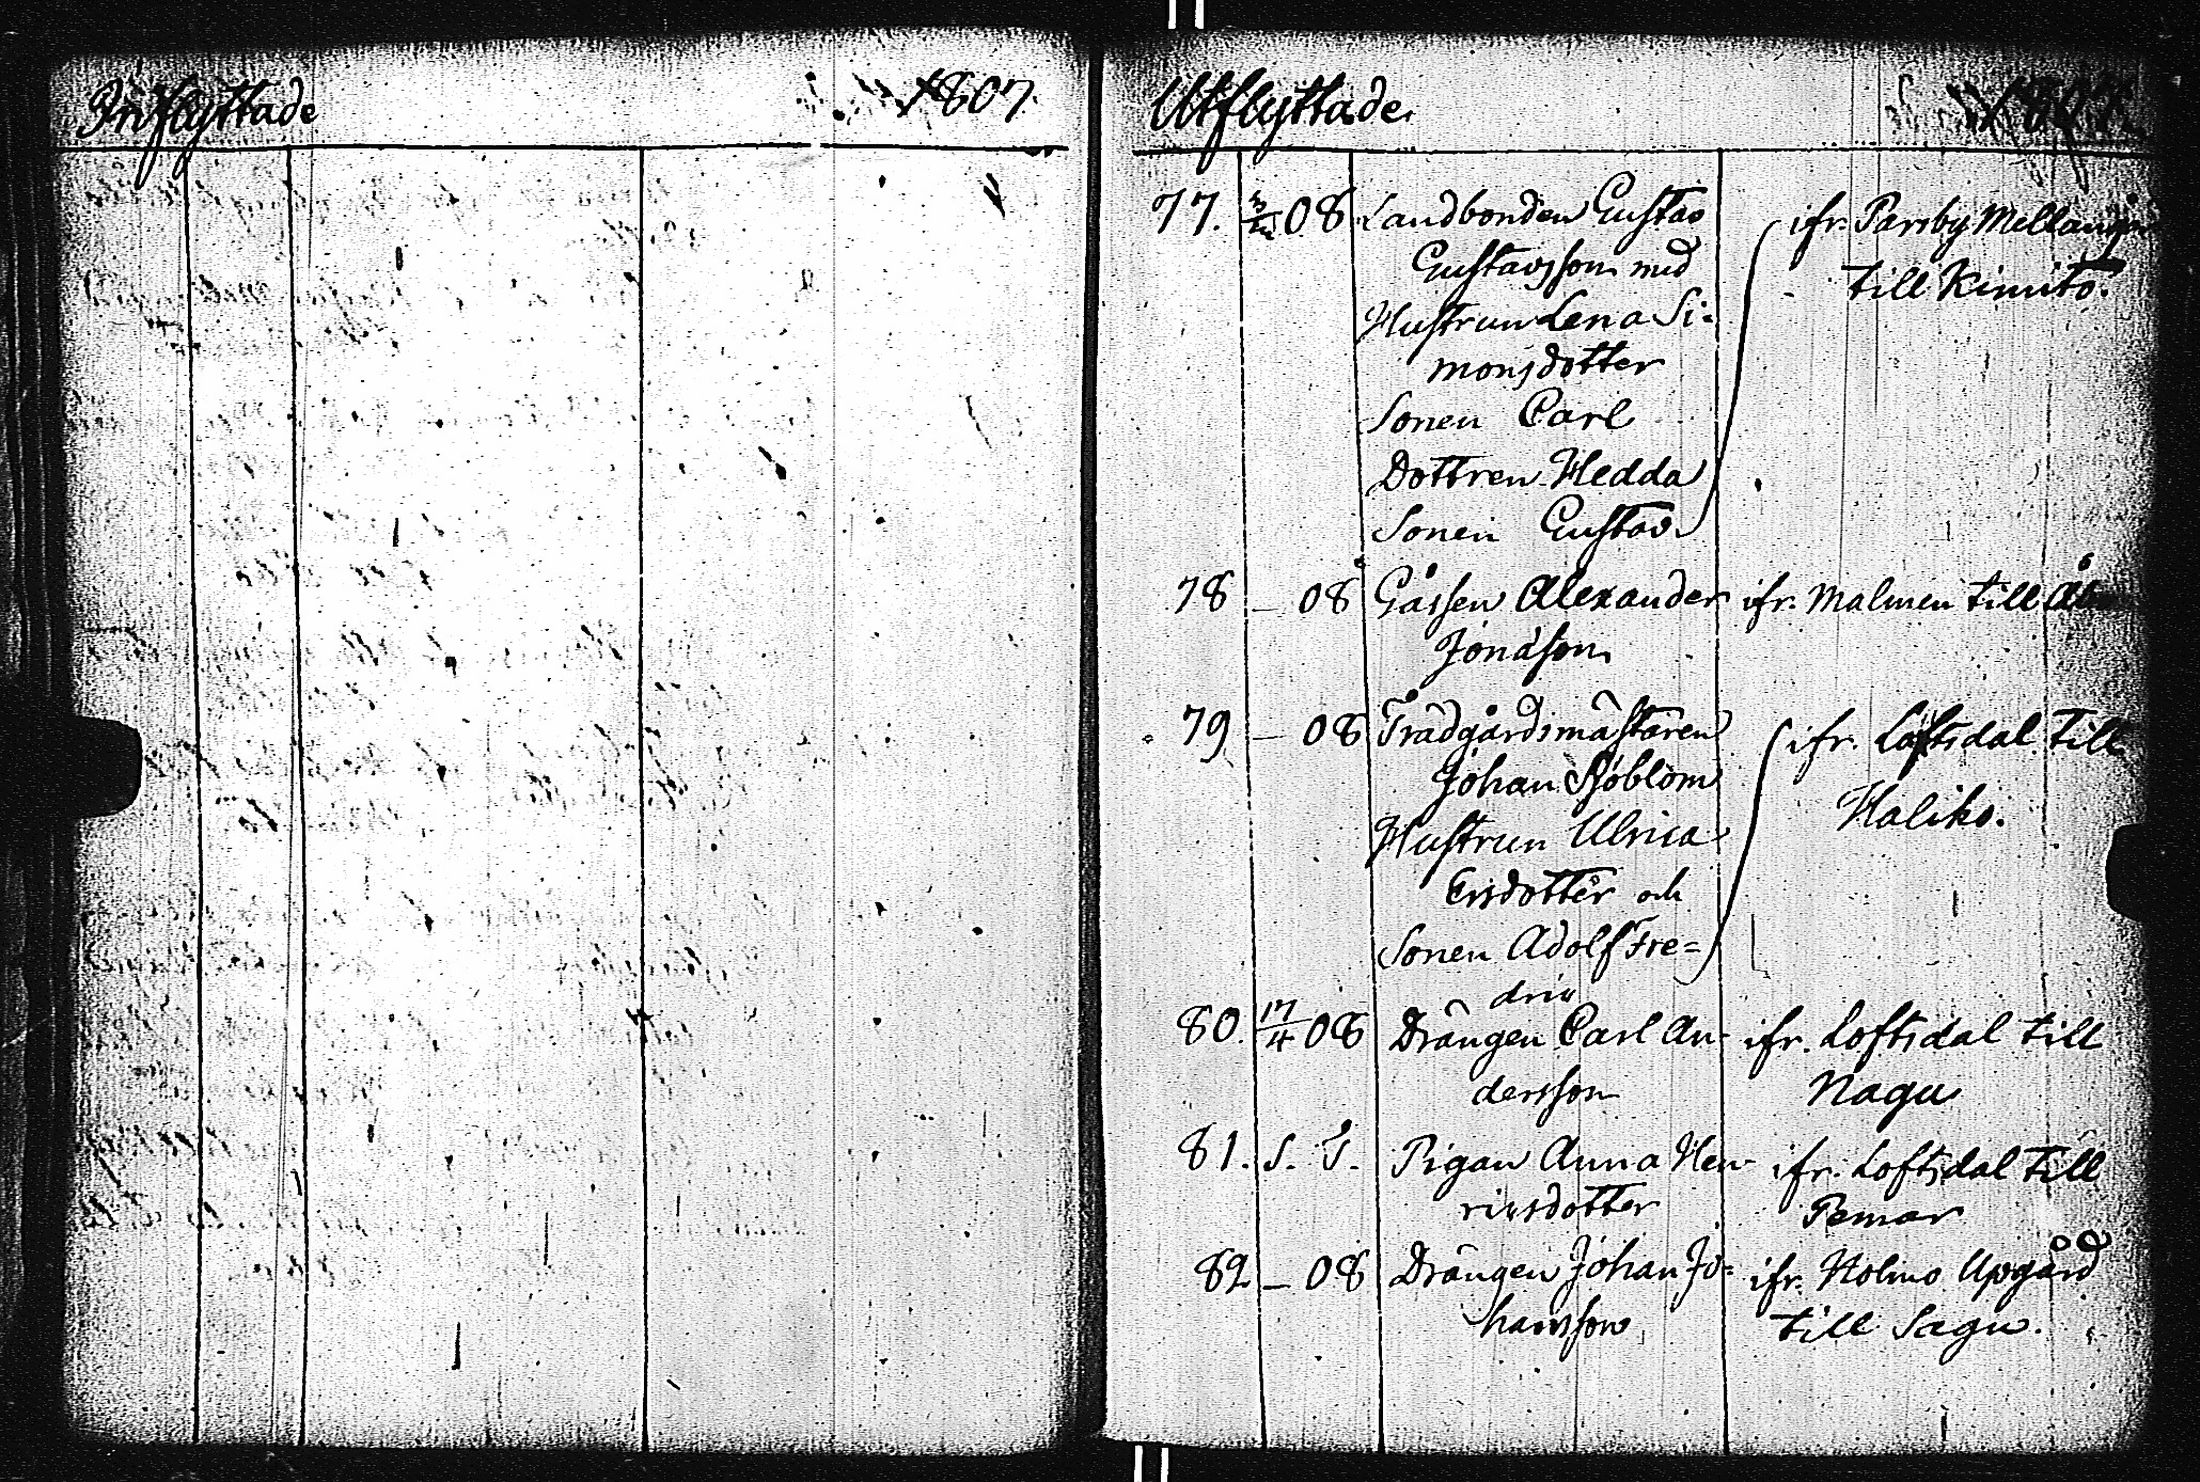 Inflyttade 1807.
Utflyttade. 1807.
77. 08 Landbonden Gustav ifr. Parsby Mellangård
Gustavsson med till Kimito.
Hustrun Lena Si=
monsdotter
Sonen Carl
Dottren Hedda
Sonen Gustav
78 – 08 Gåssen Alexander ifr. Malmen till
Jonasson
79 – 08 Trädgårdsmästaren ifr. Loftsdal till
Johan Sjöblom Haliko.
Hustrun Ulrica
Ersdotter och
Sonen Adolf Fre=
dric
80. 17/4 08 Drängen Carl An- ifr. Loftsdal till
dersson Nagu
81. S. T. Pigan Anna Hen- ifr. Loftsdal till
ricsdotter Pemar
82 – 08 Drängen Johan Jo= ifr. Holmo Upgård
hansson till Sagu.